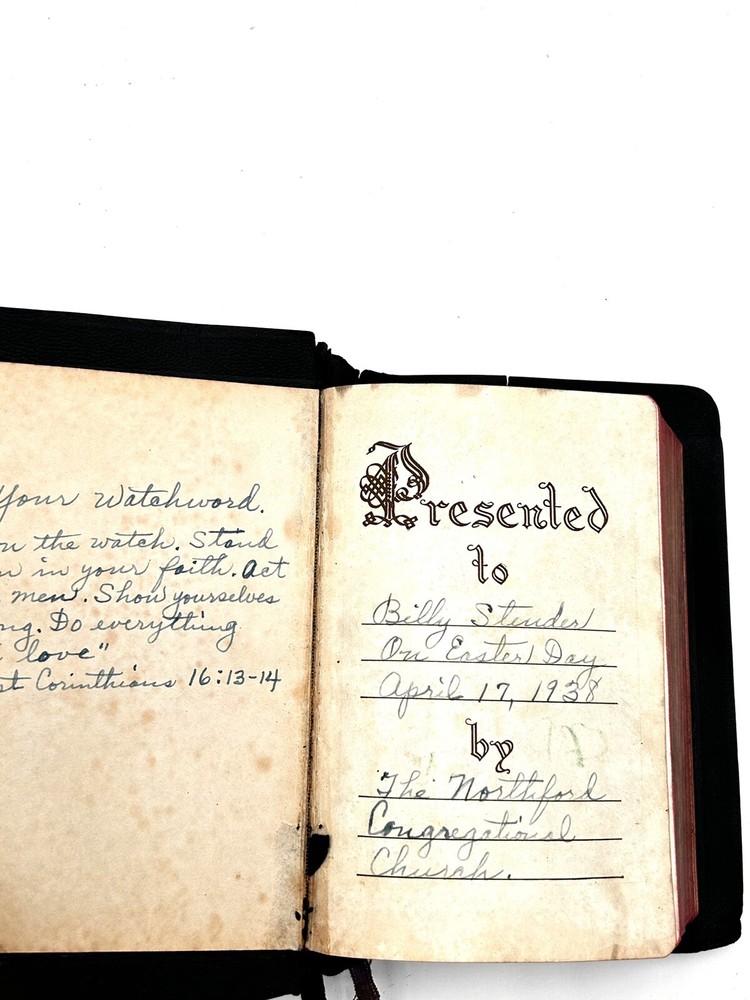 Your Watchword.
on the watch. Stand
in your faith. Act
men. Show yourselves
ng. Do everything
love"
st Corinthians 16:13-14
Presented
to
Billy Stender
On Easter Day
April 17, 1938
by
The Northford
Congregational
Church.